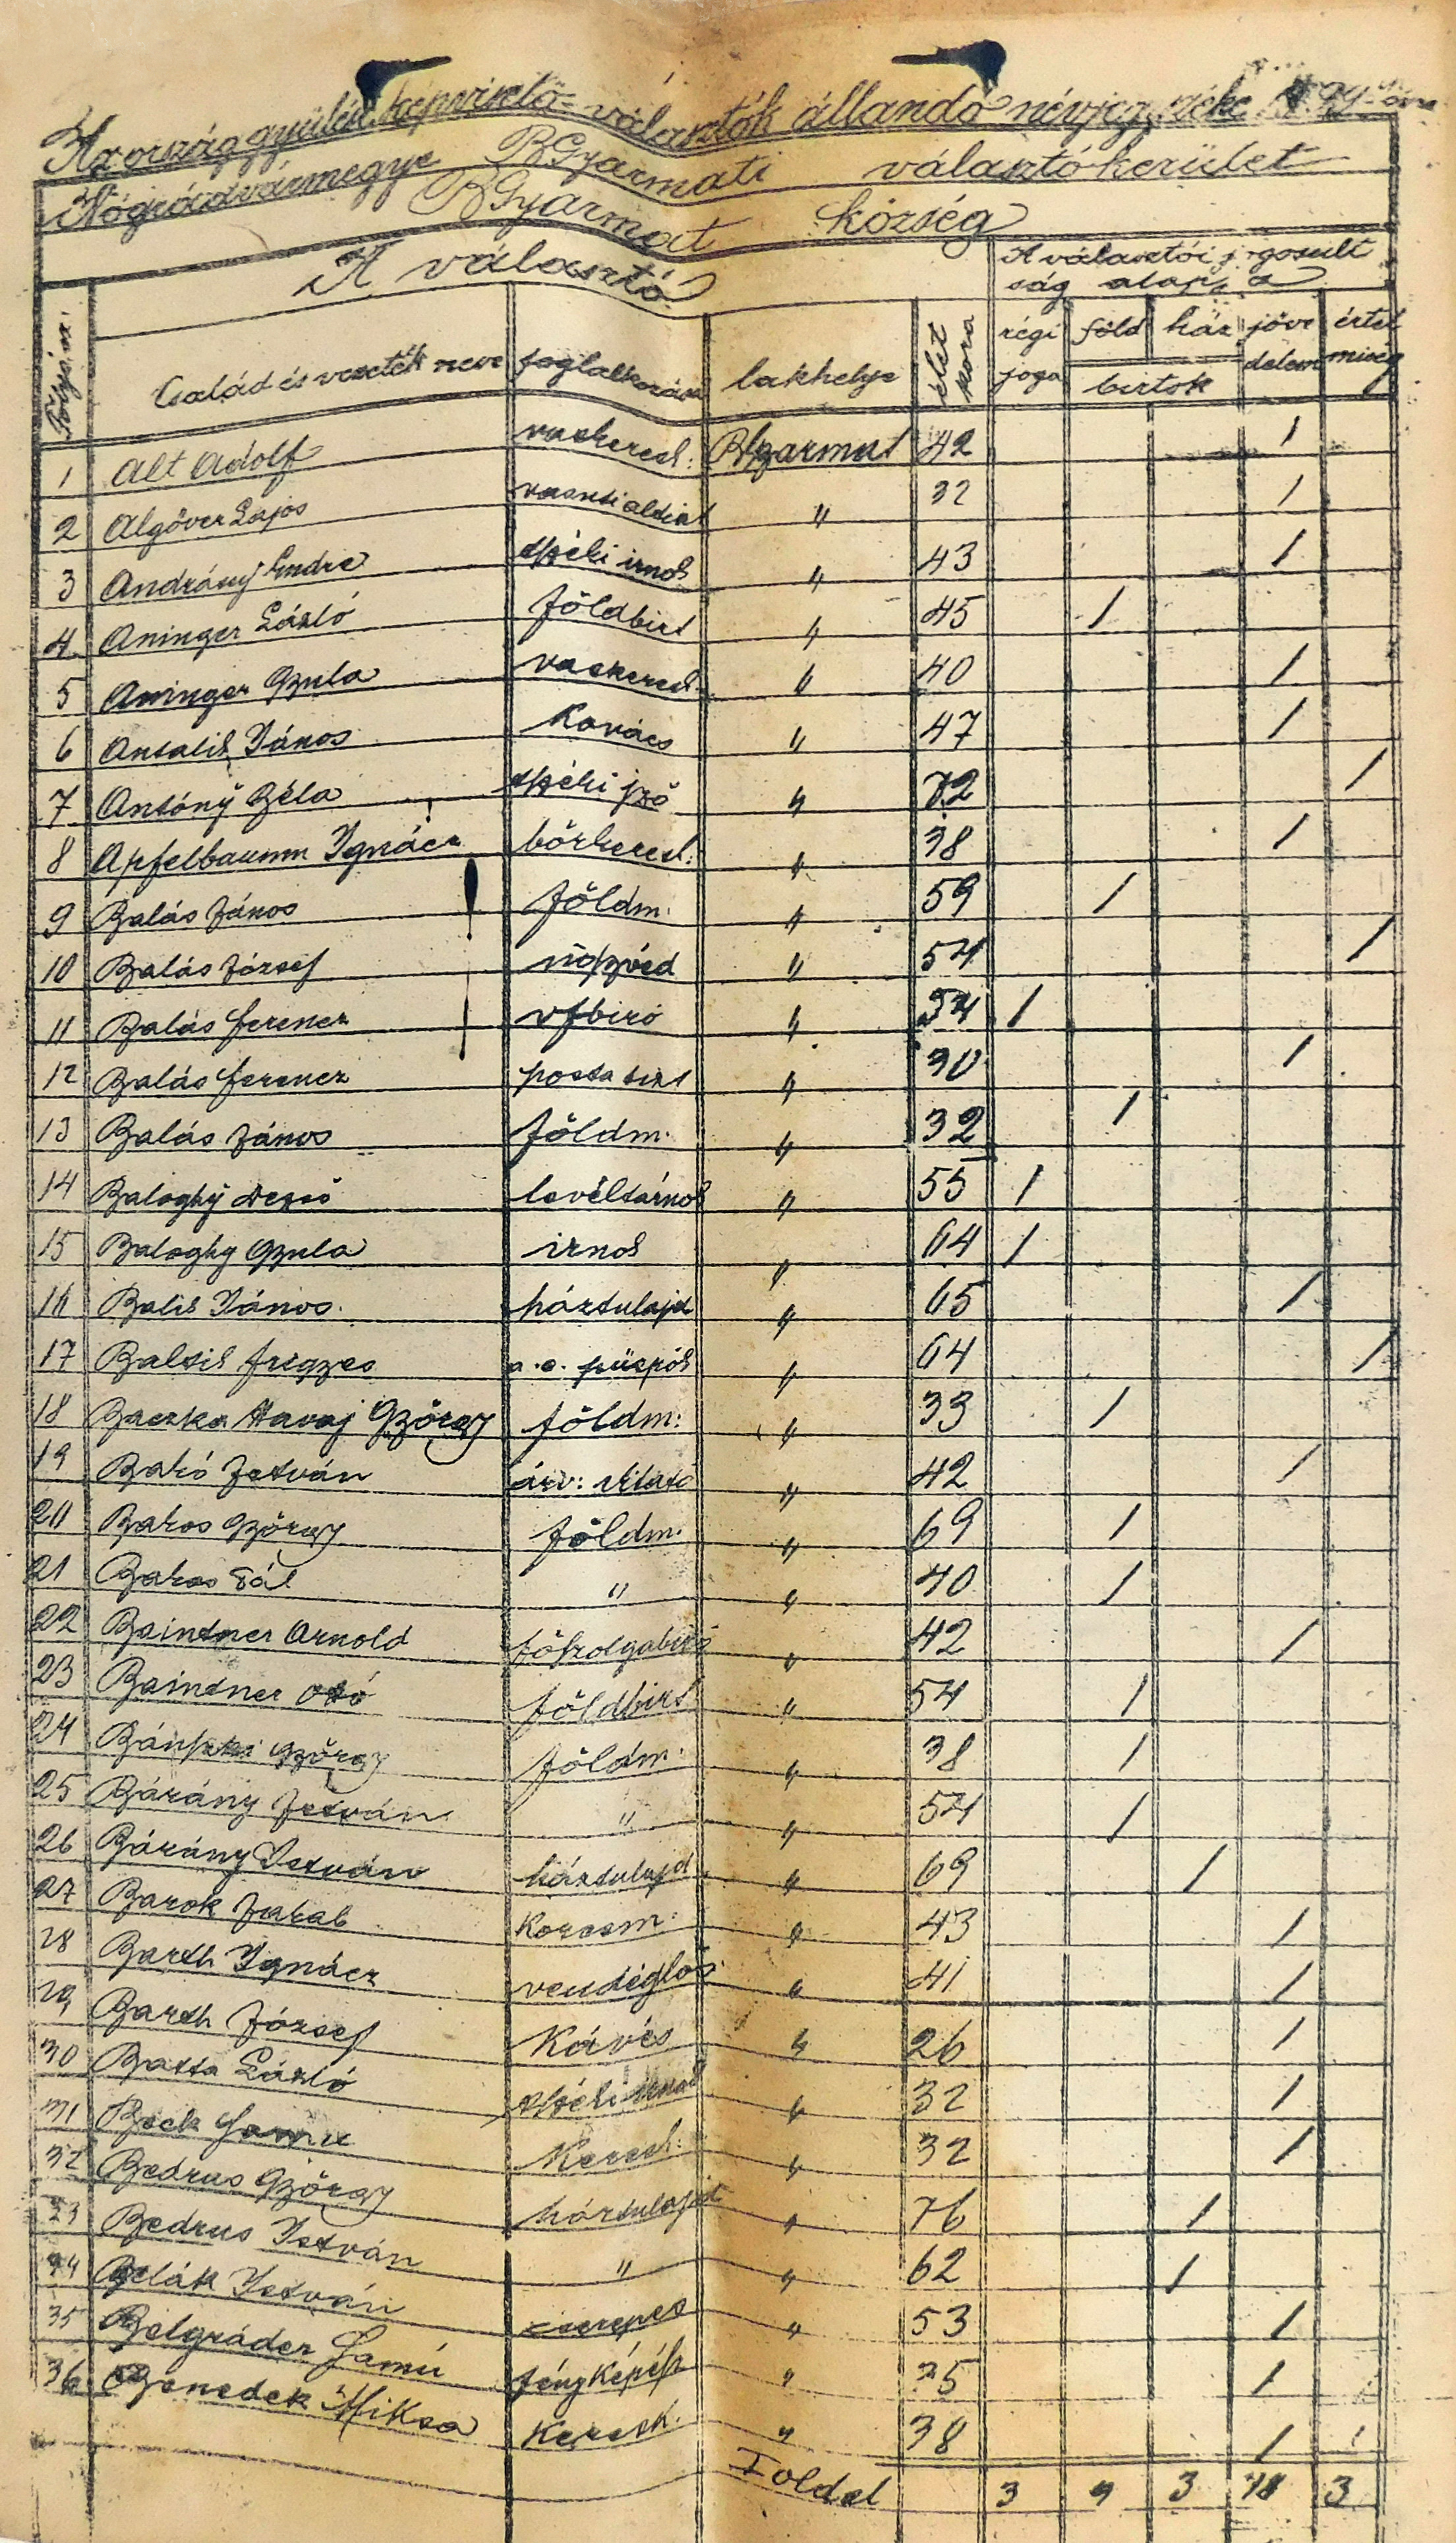 Az országgyűlési képviselő-választók állandó névjegyzéke
Nógrádvármegye BGyarmati választókerület
BGyarmat község
A választó A választói jogosult
ság alapja
Folyó sz. Család és vezeték neve foglalkozása lakhelye élet kora régi joga föld ház birtok jöve delem értel miség
1 Alt Adolf vaskeresk: BGyarmat 42 /
2 Algöver Lajos vasuti altiszt " 32 /
3 Andrásy Endre tszéki irnok " 43 /
4 Aninger László földbirt " 45 /
5 Aninger Gyula vaskeresk. " 40 /
6 Antalik János Kovács " 47 /
7 Antóny Béla tszéki jző " 72 /
8 Apfelbaumm Ignácz bőrkeresk: " 38 /
9 Balás János földm. " 59 /
10 Balás József ügyvéd " 54 /
11 Balás Ferencz vfbiró " 54 /
12 Balás Ferencz posta tiszt " 30 /
13 Balás János földm. " 32 /
14 Baloghy Dezső levéltárnok " 55 /
15 Baloghy Gyula irnok " 64 /
16 Balik János. háztulajd " 65 /
17 Baltik Frigyes a.e. püspök " 64 /
18 Baczka Havaj György földm: " 33 /
19 Bakó István árv: " 42 /
20 Bakos György földm. " 69 /
21 Bakos Pál " " 40 /
22 Baintner Arnold főszolgabiró " 42 /
23 Baintner Ottó földbirt " 54 /
24 Bánszki György földm. " 38 /
25 Bárány István " " 54 /
26 Bárány István háztulajd " 69 /
27 Barok Jakab Korcsm. " 43 /
28 Barth Ignácz vendéglős " 41 /
29 Barth József Kávés " 26 /
30 Batta László tszéki irnok " 32 /
31 Beck Samu Keresk. " 32 /
32 Bedrus György háztulajd " 76 /
33 Bedrus István " " 62 /
34 Belák István cserepes " 53 /
35 Belgráder Samú fényképész " 35 /
36 Benedek Miksa Keresk. " 38 /
Toldal 3 9 3 18 3